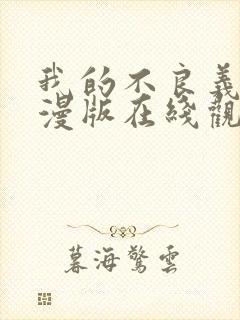 我的不良義
漫版在綫觀
暮海驚雲